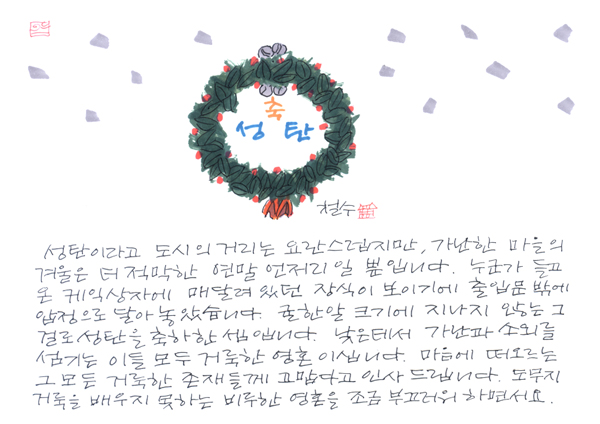 축
성 탄
철수
성탄이라고 도시의 거리는 요란스럽지만, 가난한 마을의
겨울은 더 적막한 연말 언저리일 뿐입니다. 누군가 들고
온 케익상자에 매달려 있던 장식이 보이기에 출입문 밖에
압정으로 달아 놓았습니다. 귤한알 크기에 지나지 않는 그
걸로 성탄을 축하한 셈입니다. 낮은데서 가난과 소외를
섬기는 이들 모두 거룩한 영혼이십니다. 마음에 떠오르는
그 모든 거룩한 존재들께 고맙다고 인사 드립니다. 도무지
거룩을 배우지 못하는 비루한 영혼을 조금 부끄러워 하면서요.